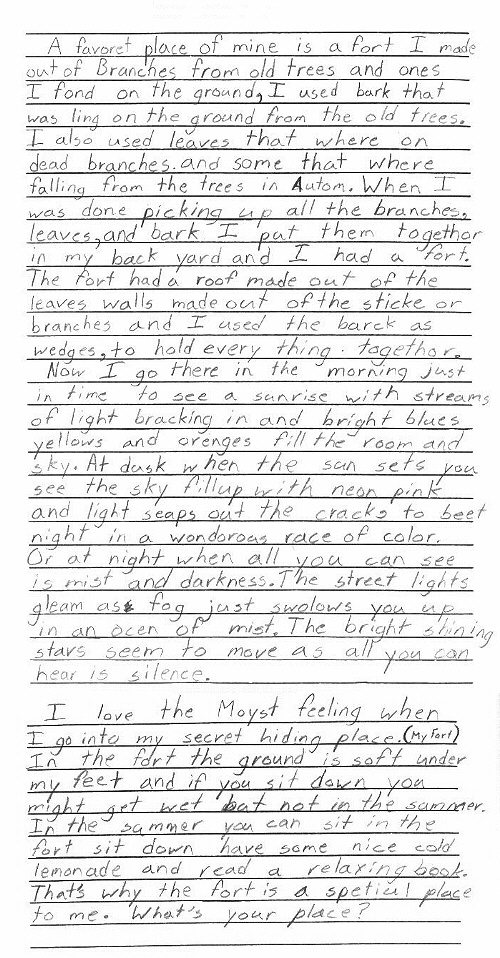 A favoret place of mine is a fort I made
out of Branches from old trees and ones
I fond on the ground, I used bark that
was ling on the ground from the old trees.
I also used leaves that where on
dead branches. and some that where
falling from the trees in Autom. When I
was done picking up all the branches,
leaves, and bark I put them together
in my back yard and I had a fort.
The fort had a roof made out of the
leaves walls made out of the sticke or
branches and I used the barck as
wedges, to hold every thing. togethor.
Now I go there in the morning just
in time to see a sunrise with streams
of light bracking in and bright blues
yellows and orenges fill the room and
sky. At dusk when the sun sets you
see the sky fillup with neon pink
and light seaps out the cracks to beet
night in a wondorous race of color.
Or at night when all you can see
is mist and darkness. The street lights
gleam as fog just swolows you up
in an ocen of mist. The bright shining
stars seem to move as all you can
hear is silence.
I love the Moyst feeling when
I go into my secret hiding place. (My Fort)
In the fort the ground is soft under
my feet and if you sit down you
might get wet but not in the summer.
In the summer you can sit in the
fort sit down have some nice cold
lemonade and read a relaxing book.
That's why the fort is a spetiul place
to me. What's your place?